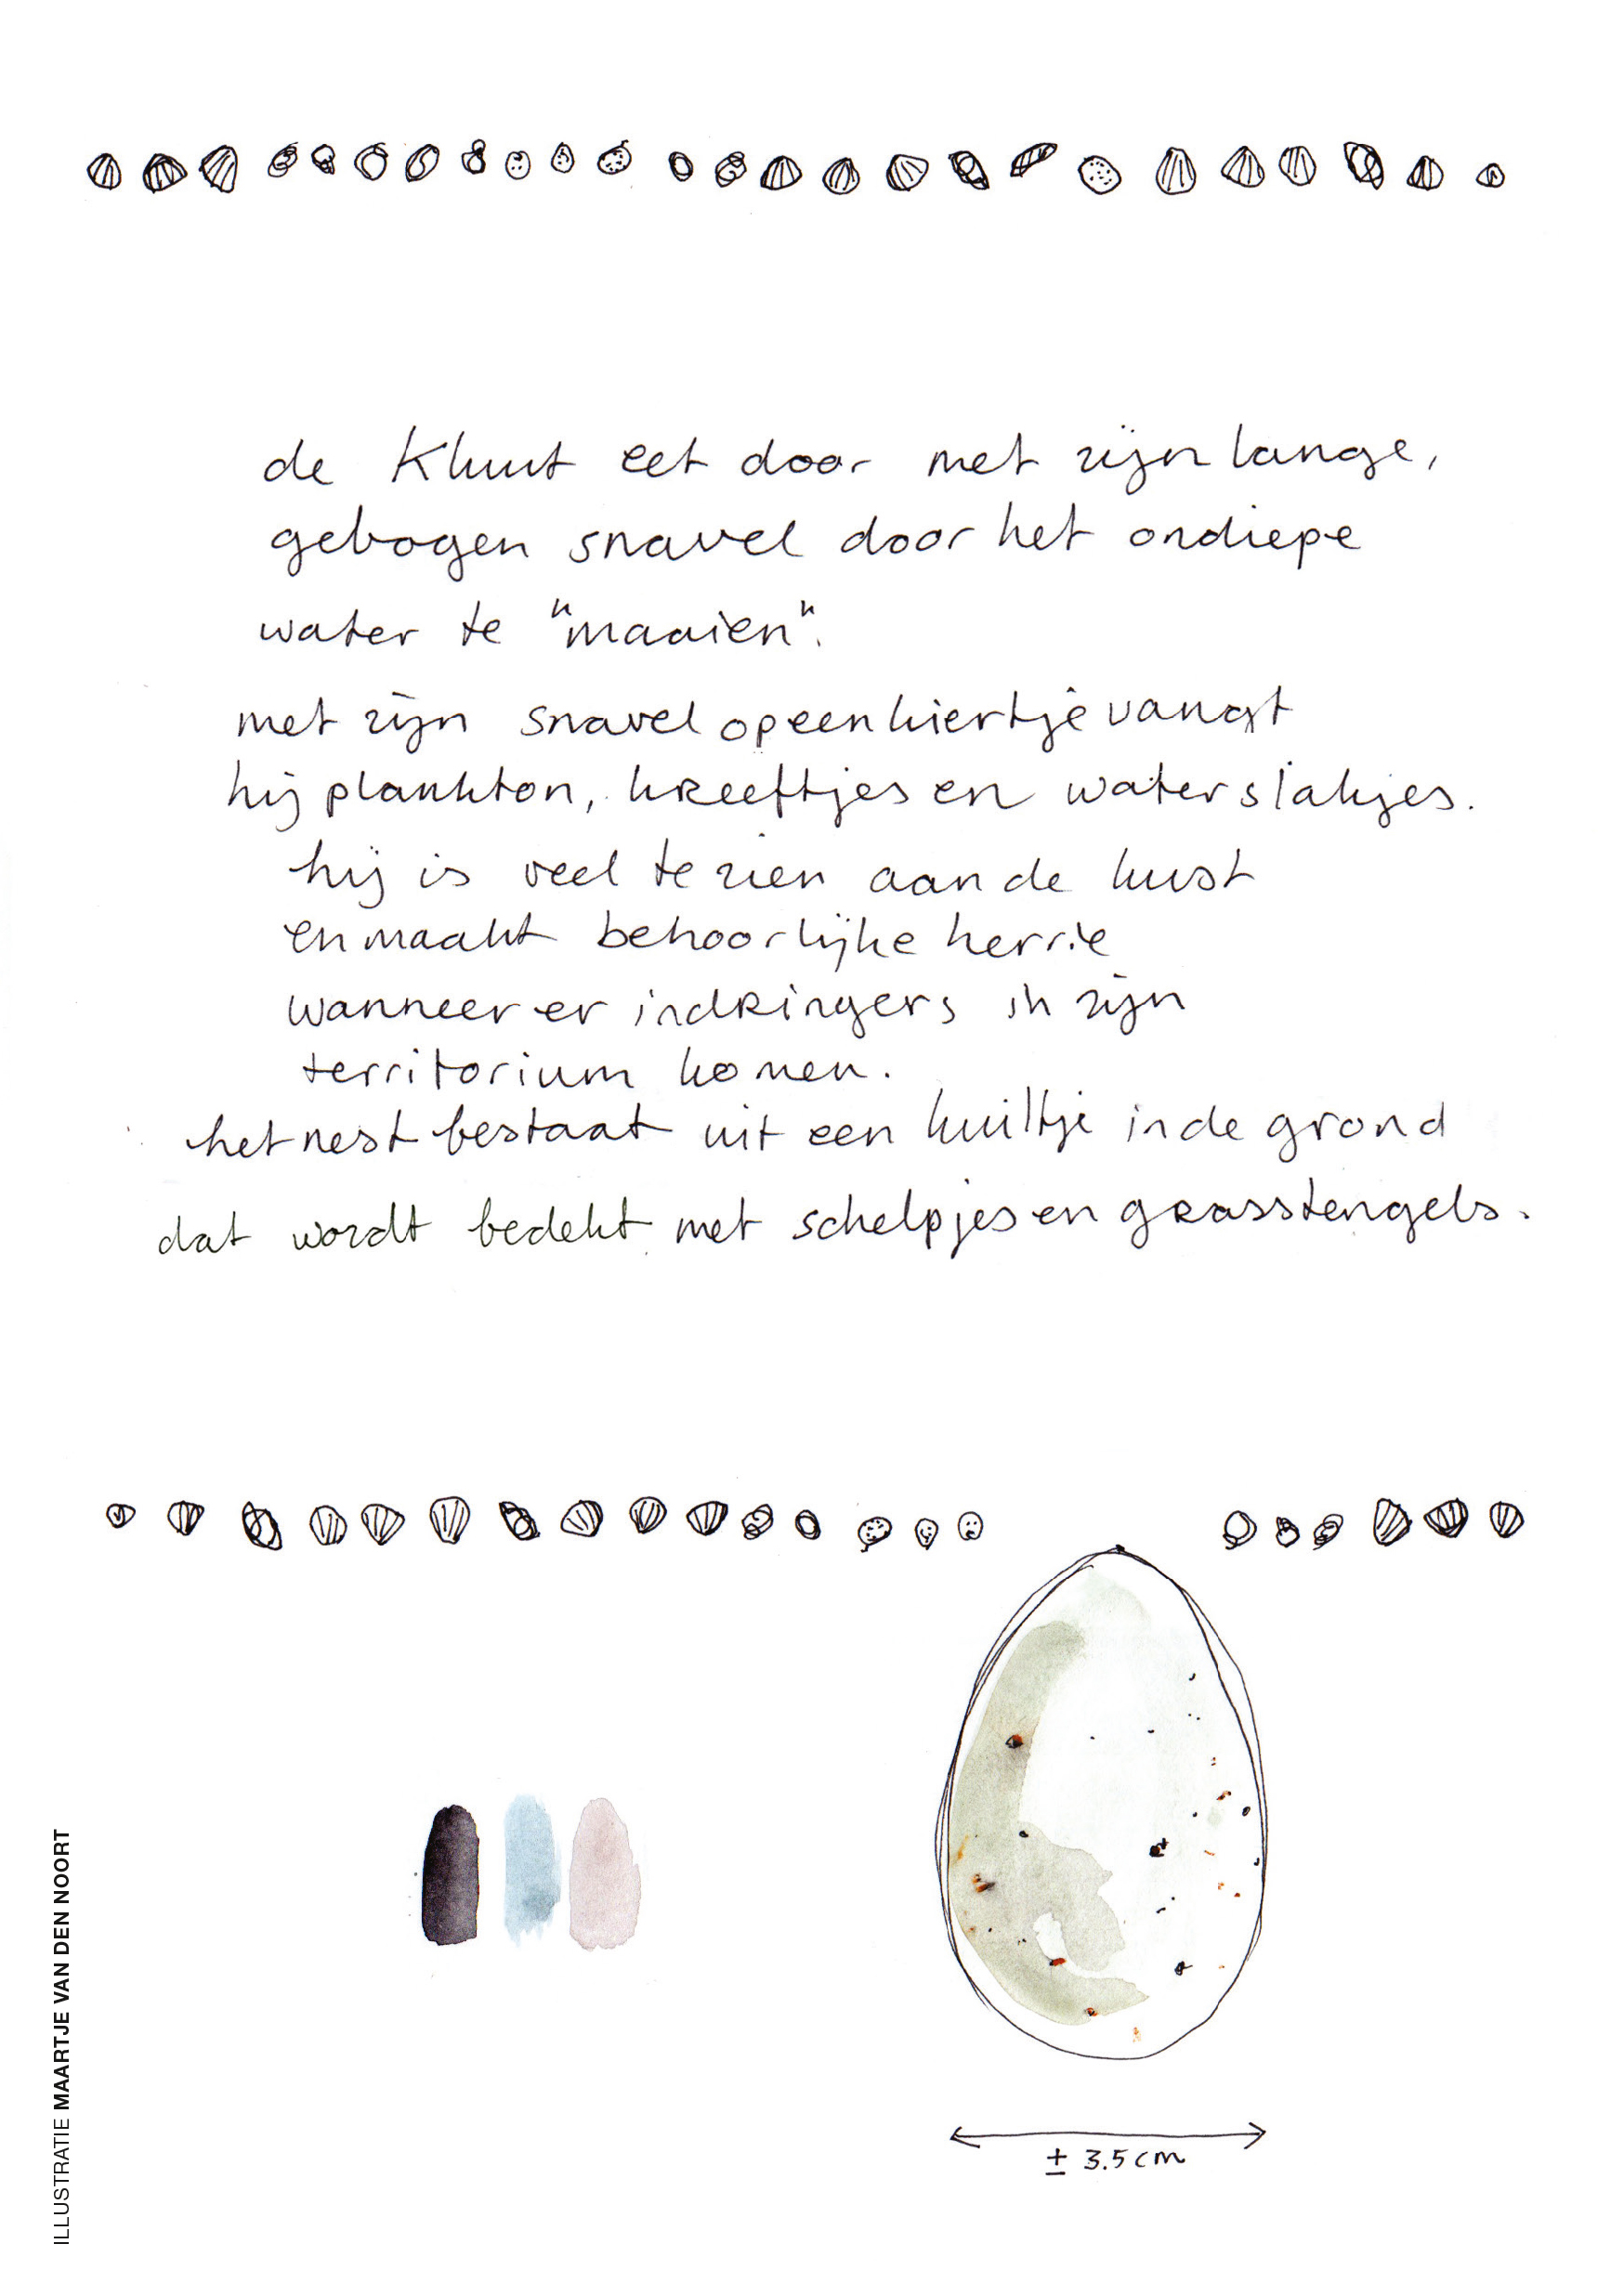 de Kluut eet door met zijn lange,
gebogen snavel door het ondiepe
water te "maaien".
met zijn snavel op een kiertje vangt
hij plankton, kreeftjes en waterslakjes.
hij is veel te zien aan de kust
en maakt behoorlijke herrie
wanneer er indringers in zijn
territorium komen.
het nest bestaat uit een kuiltje in de grond
dat wordt bedekt met schelpjes en grasstengels.
± 3.5 cm
ILLUSTRATIE MAARTJE VAN DEN NOORT